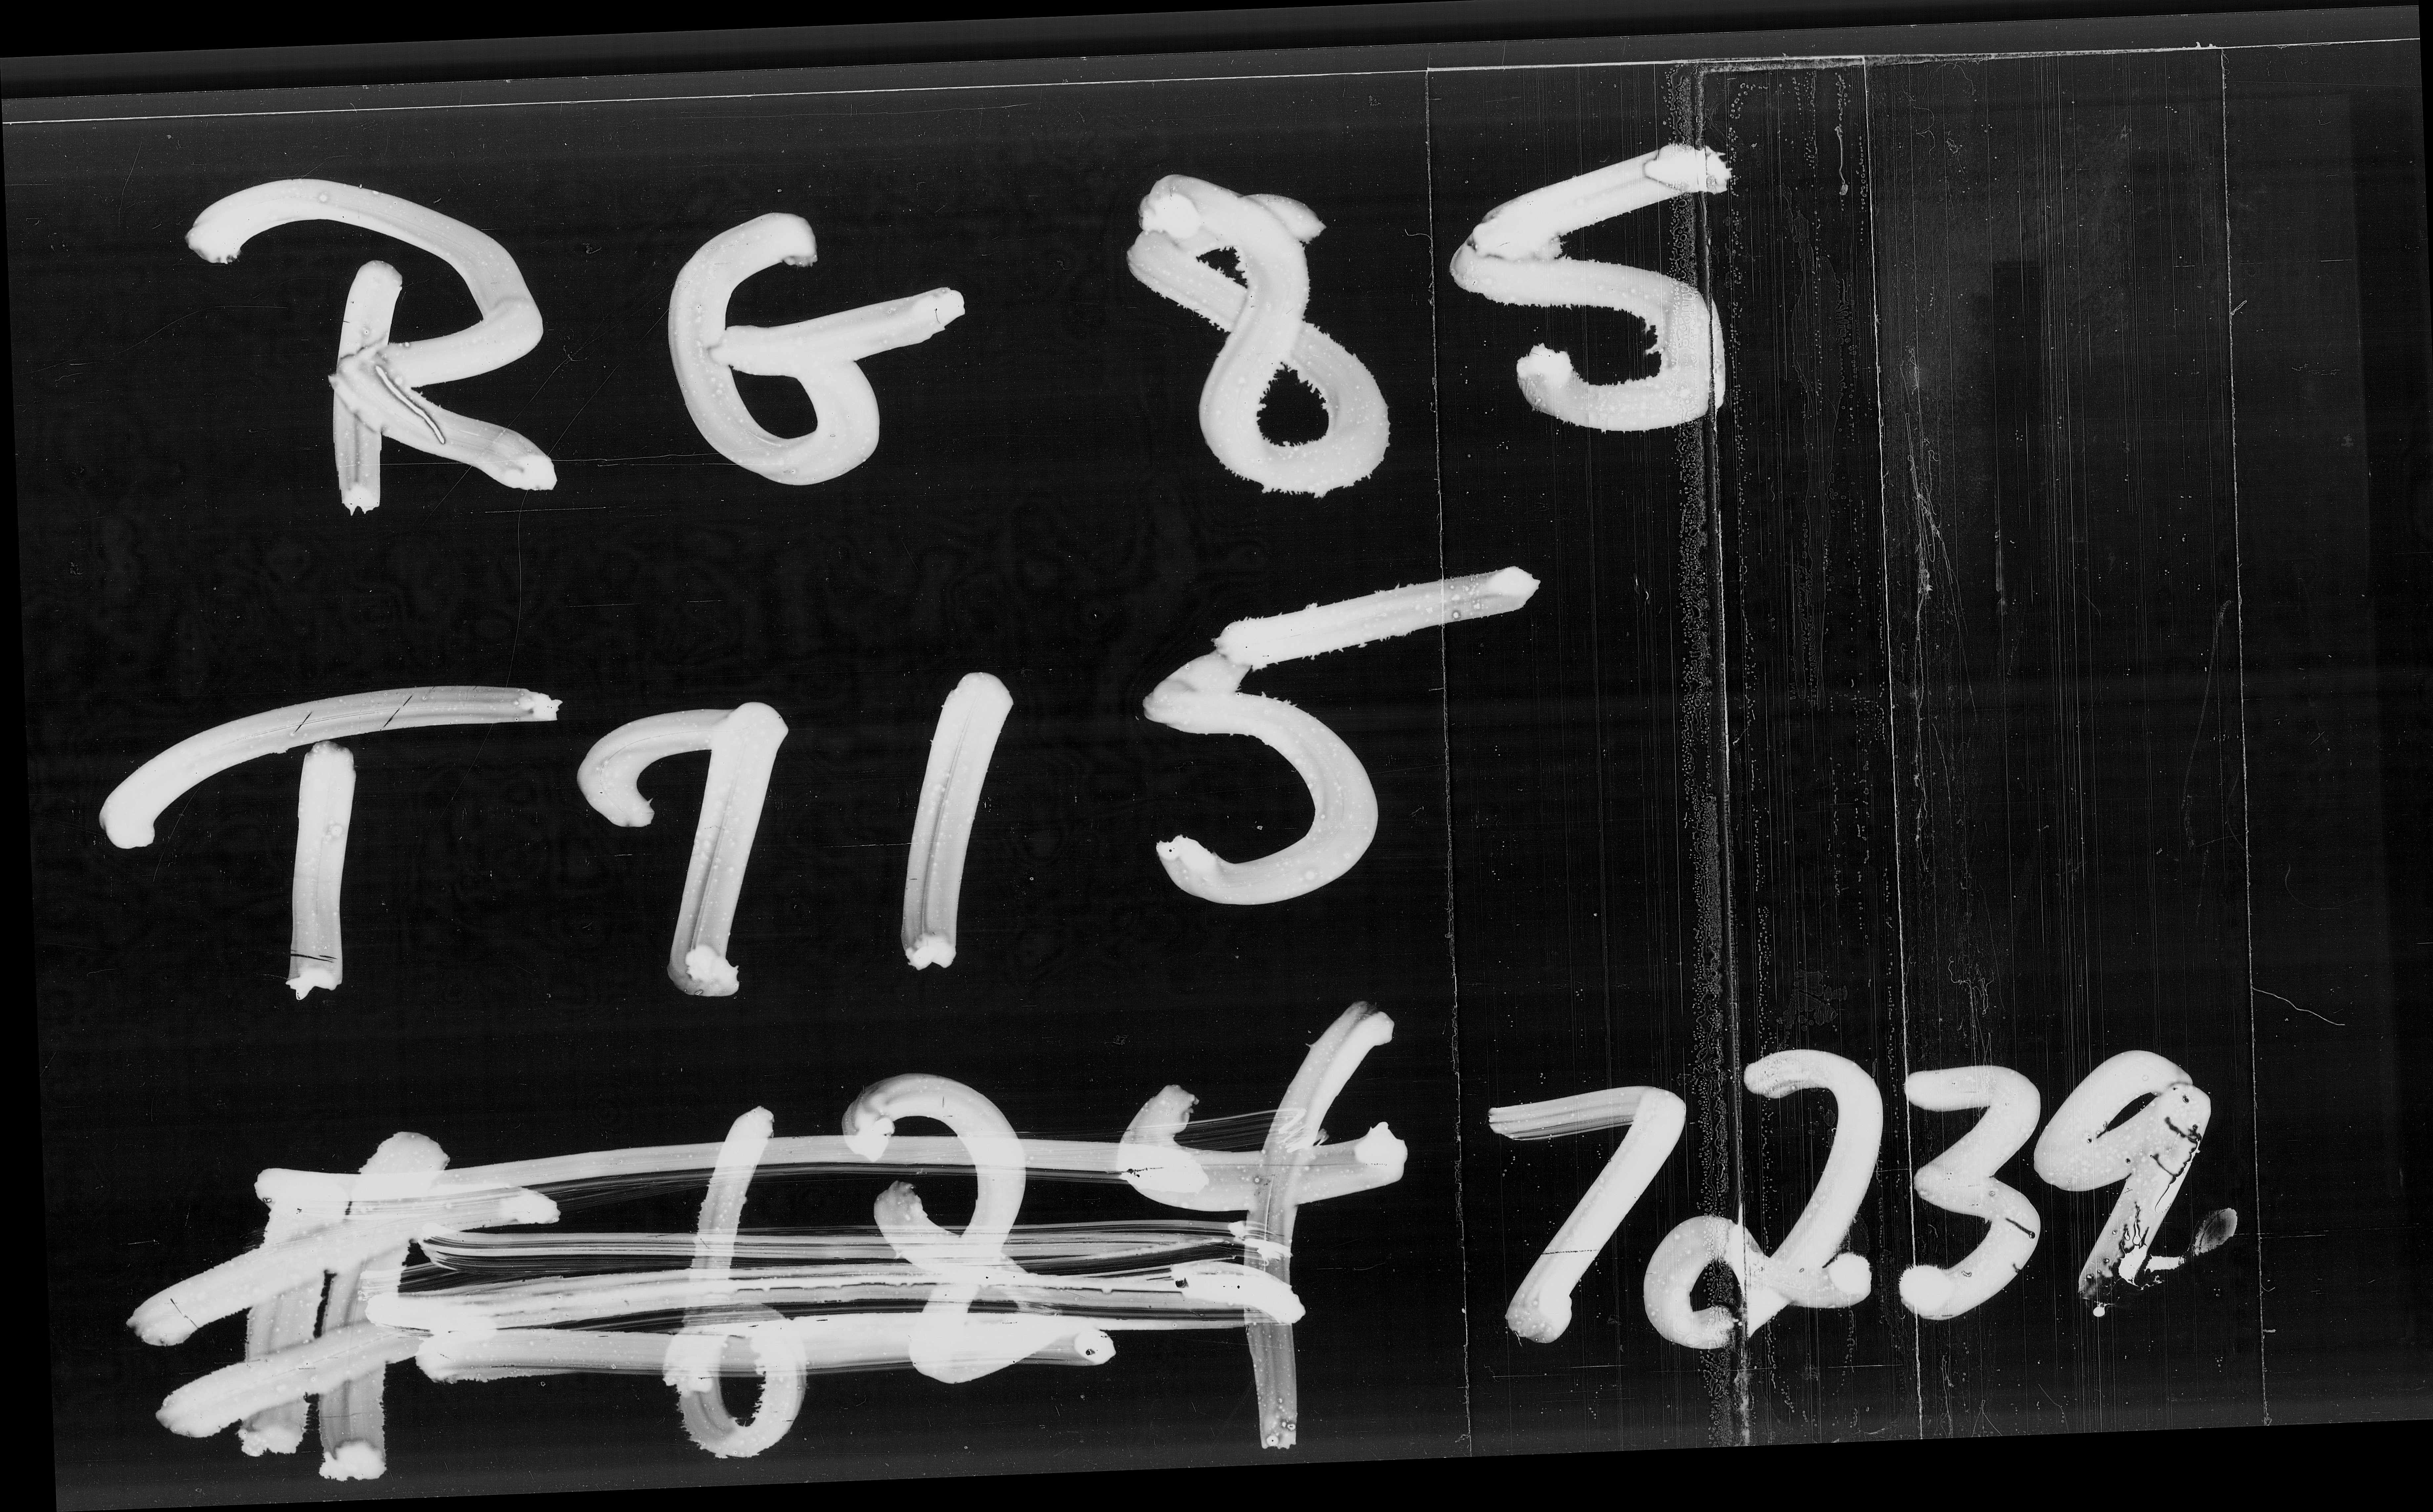 RG 85
T715
#624 7239